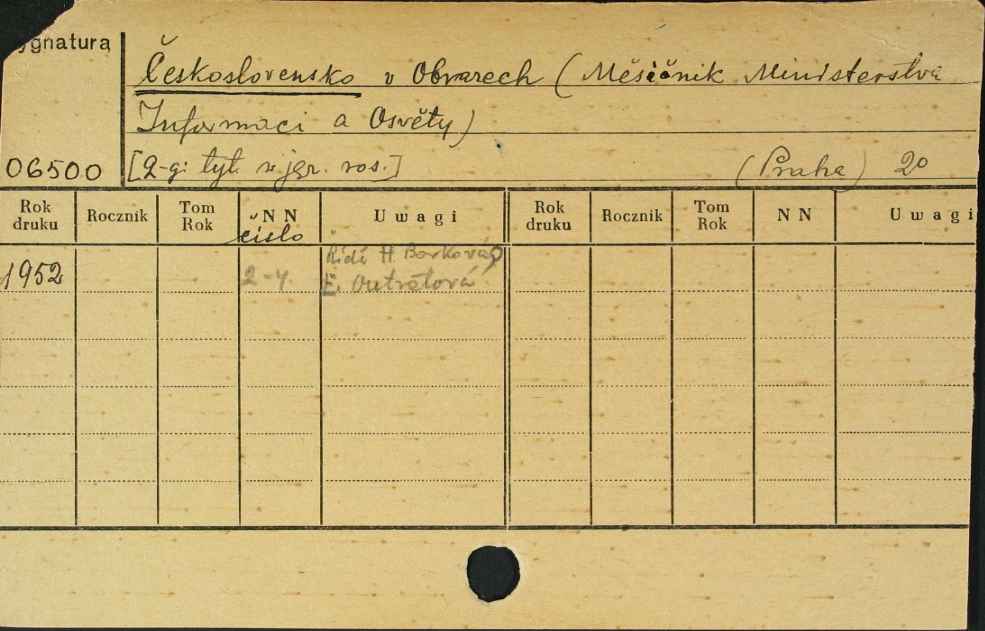 ygnatura
Československo v Obrazech (Měsíčnik Ministerstva
Informaci a Osvěty)
06500 [2-gi tyt. w jęz. ros.] (Praha) 2°
Rok druku Rocznik Tom Rok NN U w a g i Rok druku Rocznik Tom Rok NN U w a g i
čislo
Řídí H. Borková,
1952 2-4. E. Outratová